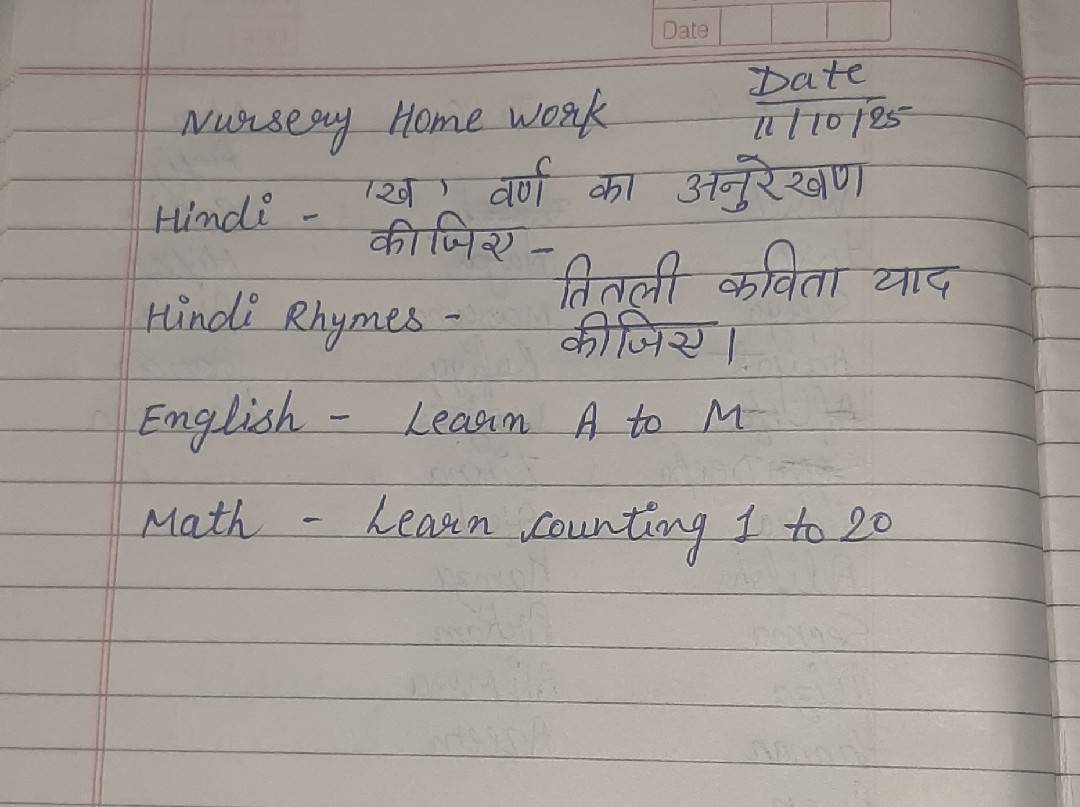 Date
Date
Nursery Home work 11/10/25
Hindi - 'ख' वर्ण का अनुरेखण
कीजिए -
Hindi Rhymes - तितली कविता याद
कीजिए।
English - Learn A to M
Math - Learn counting 1 to 20